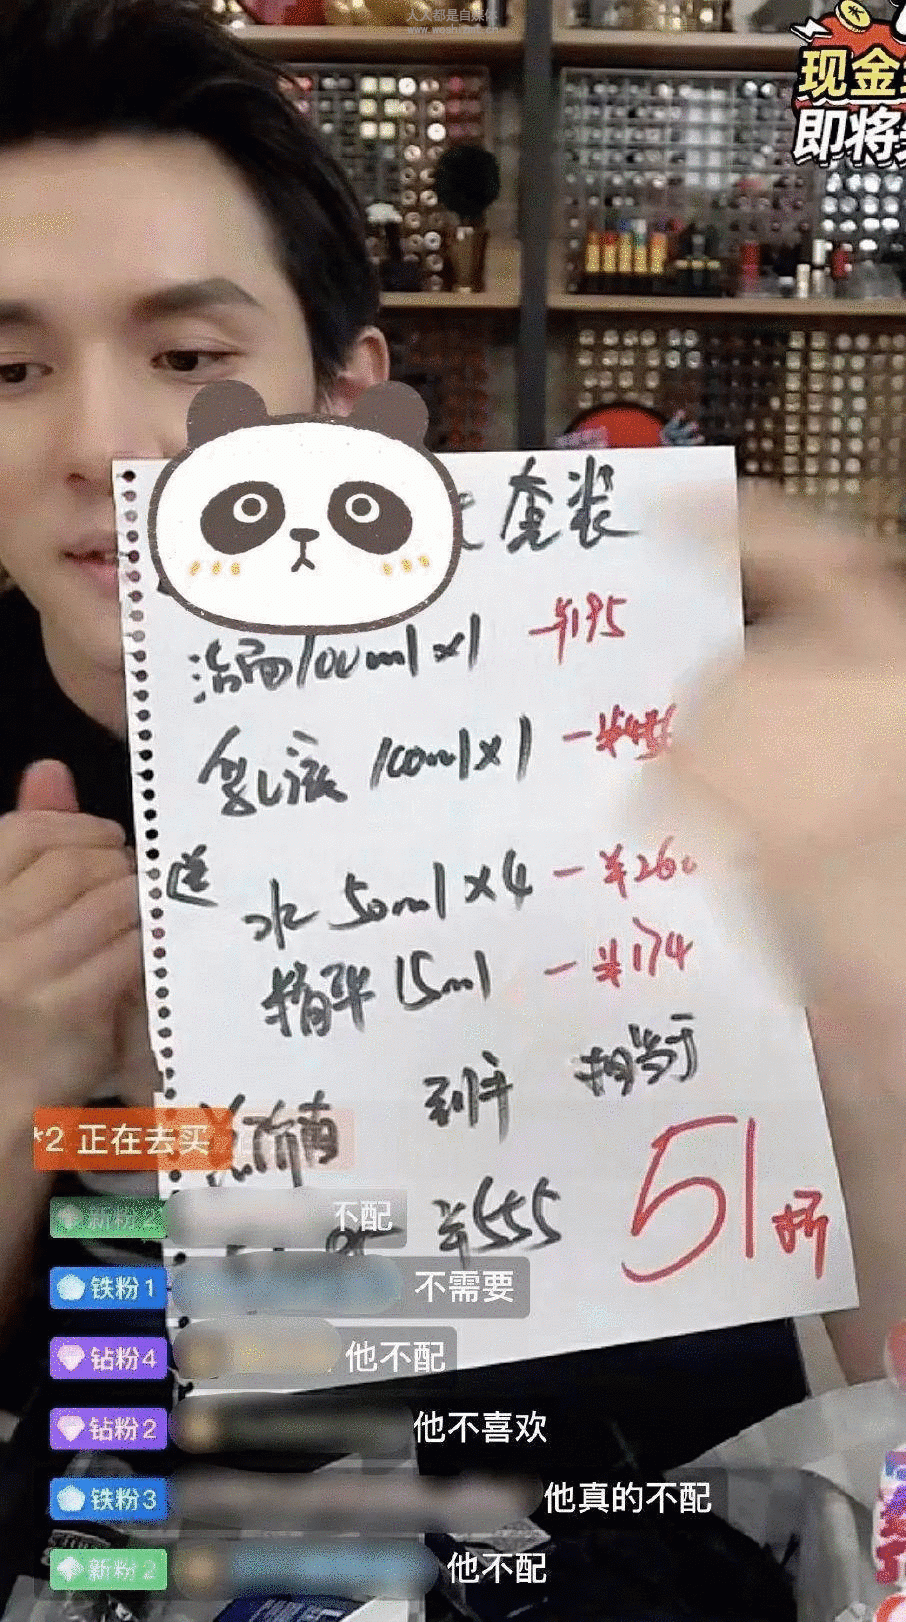 人人都是自媒体
现金
即将
套装
洁面100ml×1 —¥195
乳液 100ml×1
送
水 50ml×4 —¥260
精华 15ml —¥174
到手 相当于
¥555 51折
*2 正在去买
新粉2 不配
铁粉1 不需要
钻粉4 他不配
钻粉2 他不喜欢
铁粉3 他真的不配
新粉2 他不配